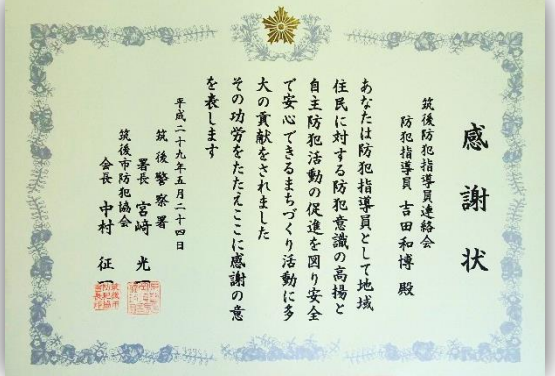 感謝状
筑後防犯指導員連絡会
防犯指導員 吉田和博 殿
あなたは防犯指導員として地域
住民に対する防犯意識の高揚と
自主防犯活動の促進を図り安全
で安心できるまちづくり活動に多
大の貢献をされました
その功労をたたえここに感謝の意
を表します
平成二十九年五月二十四日
筑後警察署
署長 宮﨑 光一
筑後市防犯協会
会長 中村 征一